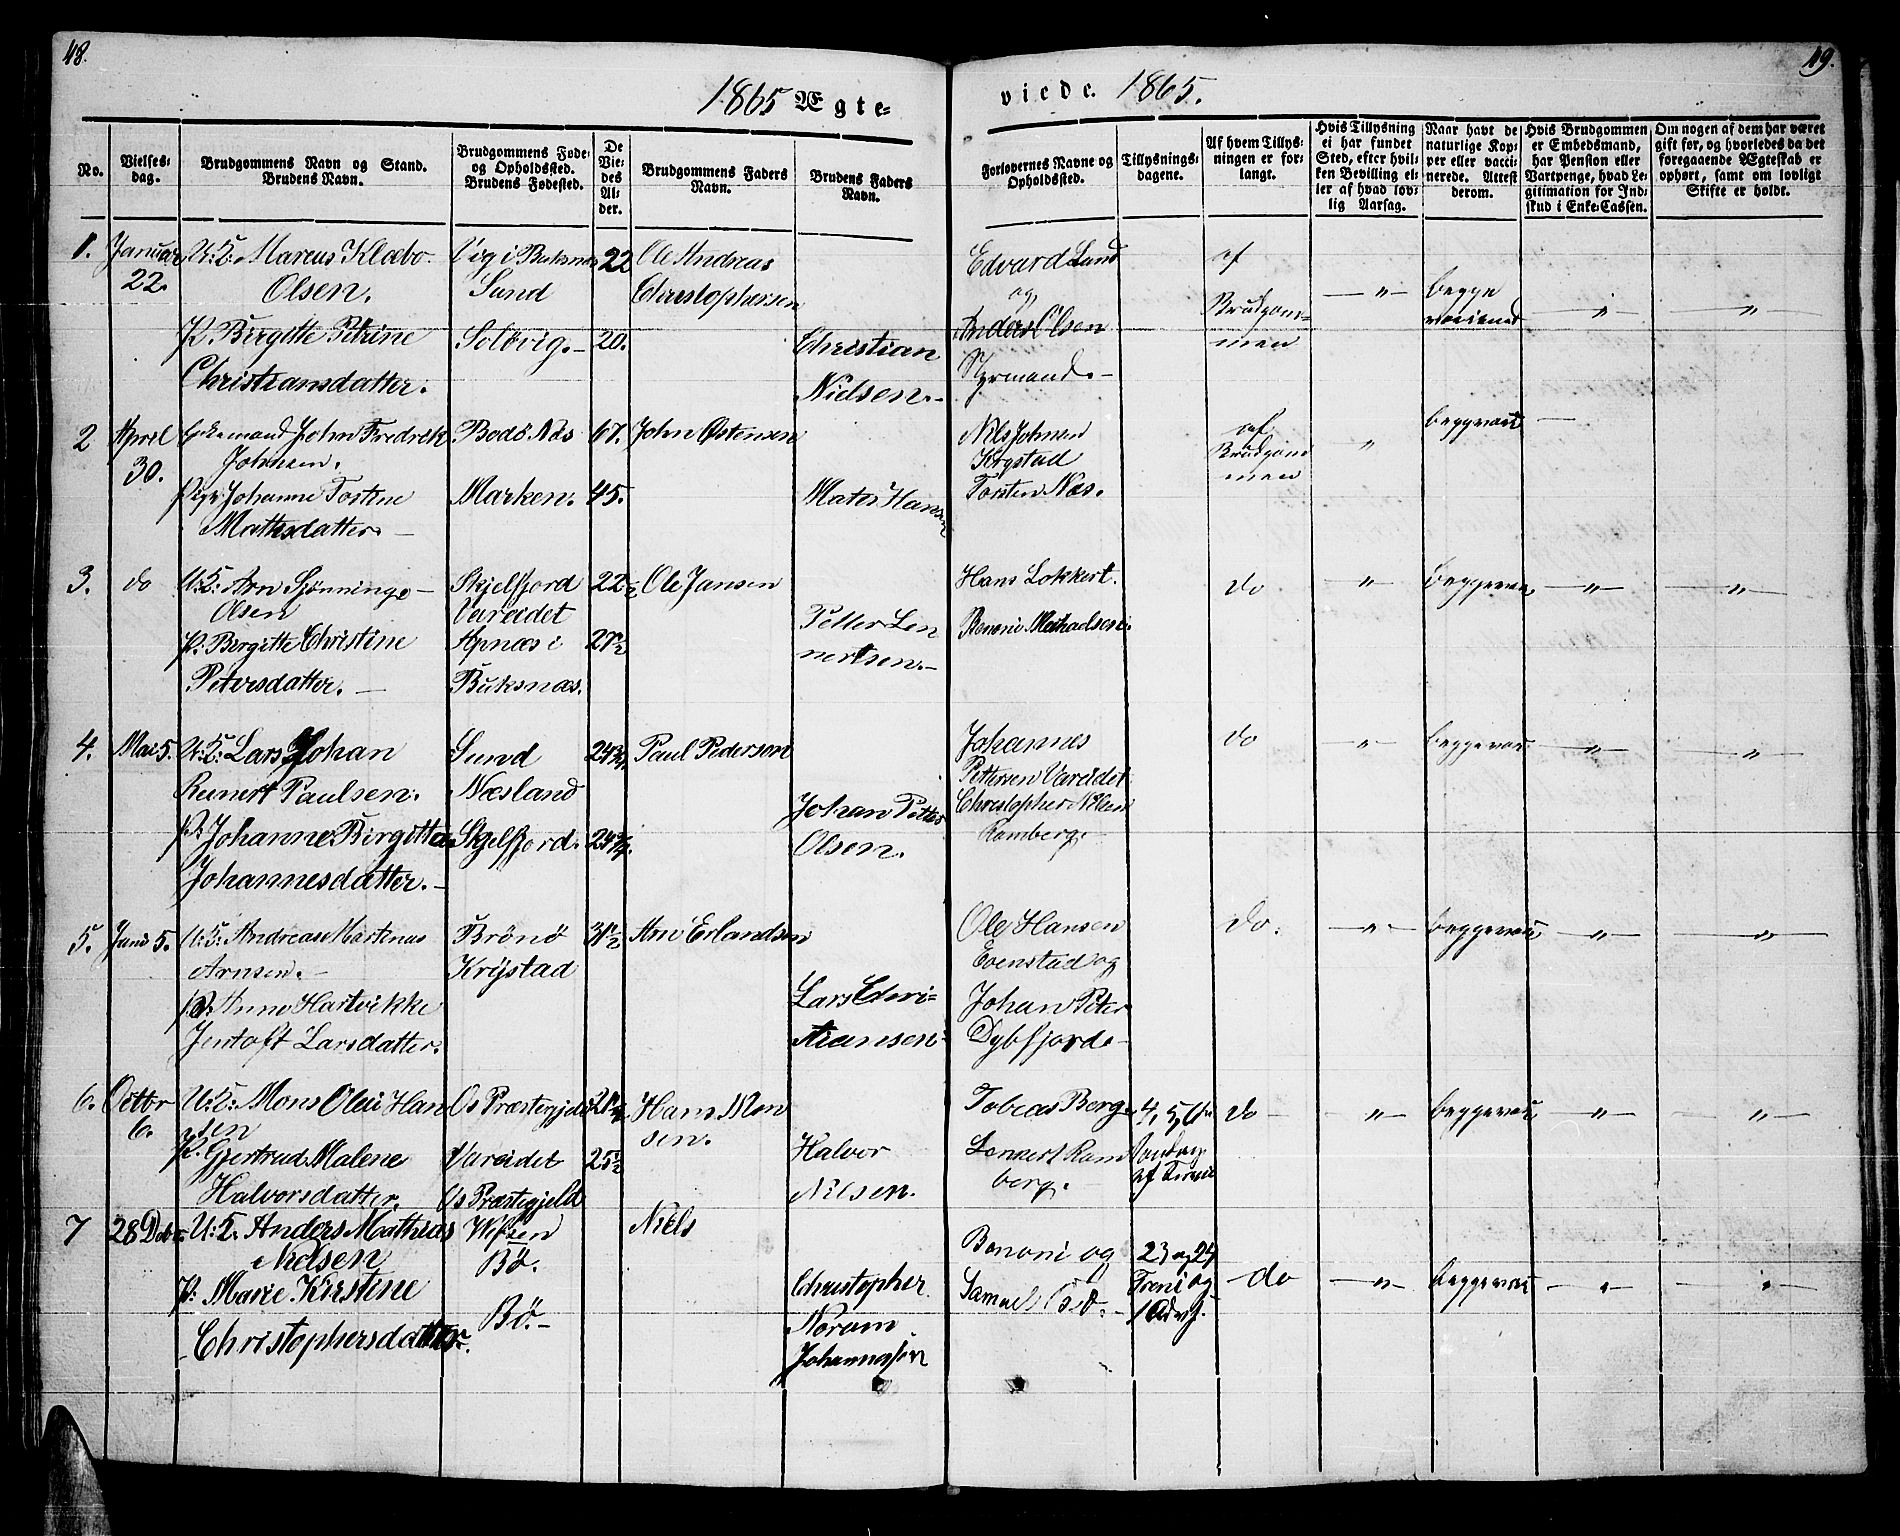 48.
49.
1865 Ægte-
viede. 1865.
No.
Vielses-
dag.
Brudgommens Navn og Stand.
Brudens Navn.
Brudgommens Føde-
og Opholdssted.
Brudens Fødested.
De
Vie-
des
Al-
der.
Brudgommens Faders
Navn.
Brudens Faders
Navn.
Forlovernes Navne og
Opholdssted.
Tillysnings-
dagene.
Af hvem Tillys-
ningen er for-
langt.
Hvis Tillysning
ei har fundet
Sted, efter hvil-
ken Bevilling el-
ler af hvad lov-
lig Aarsag.
Naar havt de
naturlige Kop-
per eller vacci-
nerede. Attest
derom.
Hvis Brudgommen
er Embedsmand,
har Pension eller
Vartpenge, hvad Le-
gitimation for Ind-
skud i Enke-Cassen.
Om nogen af dem har været
gift før, og hvorledes da det
foregaaende Ægteskab er
ophørt, samt om lovligt
Skifte er holdt.
1. Januar 22.
U:K: Marcus Klæbo
Olsen.
P. Birgitte Petrine
Christiansdatter.
Vig i Buksnæs
Sund
Solbvig.
22
20.
Ole Andreas
Christophersen
Christian
Nielsen.
Edvard Sund
og
Anders Olsen
Styrmand.
af
Brudgom-
men
— " —
begge
— " —
"
2 April 30.
Enkemand John Fredrik
Johnsen.
Pige Johanne Tostine
Mathsdatter.
Bodö Næs
Marken.
67.
45.
John Østensen
Mats Hansen
Nils Johnsen
Krystad
Torsten Næs.
af
Brudgom
men
"
begge vac
—
3. do
U:K: Arn Sjönninge
Olsen
P. Birgitte Christine
Petersdatter.
Skjelfjord
Vareidet
Apnæs i
Buksnæs.
22½
27½
Ole Jansen
Petter Len
nertsen.
Hans Lokkert.
Benoni
do
— " —
begge vac
— " —
— " —
4. Mai 5.
U:K: Lars Johan
Reinert Paulsen.
P. Johanne Birgitta
Johannesdatter.
Sund
Næsland
Skjelfjord.
24¾
24¾.
Paul Pederson
Johan Petter
Olsen.
Johannes
Pettersen Vareidet
Christopher Nilsen
Ramberg.
do
— " —
begge vac
— " —
"
5. Juni 5.
U:K: Andreas Martinus
Arnsen.
P. Anne Hartvikke
Jentoft Larsdatter.
Brönö
Krystad
31½
Arn Erlandsen
Lars Chri-
stiansen
Ole Hansen
Evenstad og
Johan Peter
Dybfjord
do.
— " —
begge vac
— " —
— " —
6. Octbr 6.
U:K: Mons Olai Han
sen
P. Gjertrud Malene
Halvorsdatter.
Os Præstegjeld
Vareidet
Os Præstegjeld
25½
Hans Mon
sen.
Halvor
Nilsen.
Tobias Berg
Lennert Ram
berg.
4, 5, 6te
Søndag
af Trinit
do
— " —
begge vac
— " —
— " —
7 28 Debr
U:K. Anders Mathias
Nielsen
P: Marie Kirstine
Christophersdatter.
Vefsen
Bö.
Bö.
Niels
Christopher
Norum
Johannesen
Benoni og
Samuel Bö.
23 og 24
Trini og
1 Adv.
do
— " —
begge vac
— " —
— " —